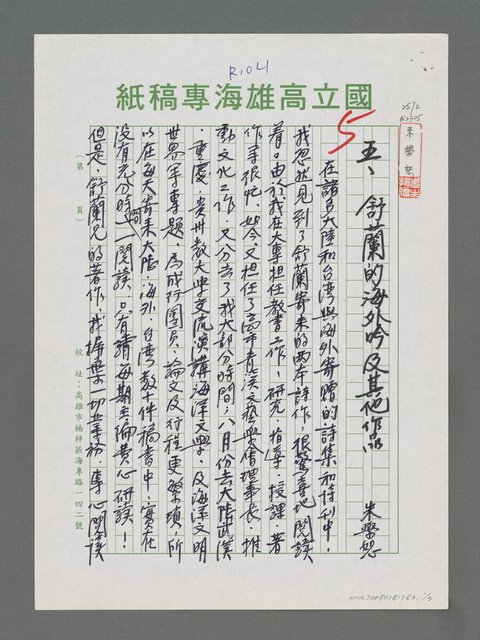 R1041
國立高雄海專稿紙
5
25/2
N2305
朱學恕
五、舒蘭的海外吟及其他作品
朱學恕
在諸多大陸和台灣與海外寄贈的詩集和詩刊中，
我忽然見到了舒蘭寄來的兩本詩作，很驚喜地閱讀
着。由於我在大專担任教書工作！研究、指導、授課、著
作等很忙，如今又担任了高市青溪文藝學會理事長，推
動文化工作，又分去了我大部分時間；八月份去大陸武漢
、重慶、貴州數大學交流演講海洋文學，及海洋文明
世界等專題，為成行團員、論文及行程更繁瑣，所
以在每天寄來大陸、海外、台灣數十件稿書中，實在
沒有充分時間一一閱讀，只有請每期主編費心研讀！
但是，舒蘭兄的著作，我摒棄一切業務，專心閱讀
（第　頁）
校址：高雄市楠梓區海專路一四二號